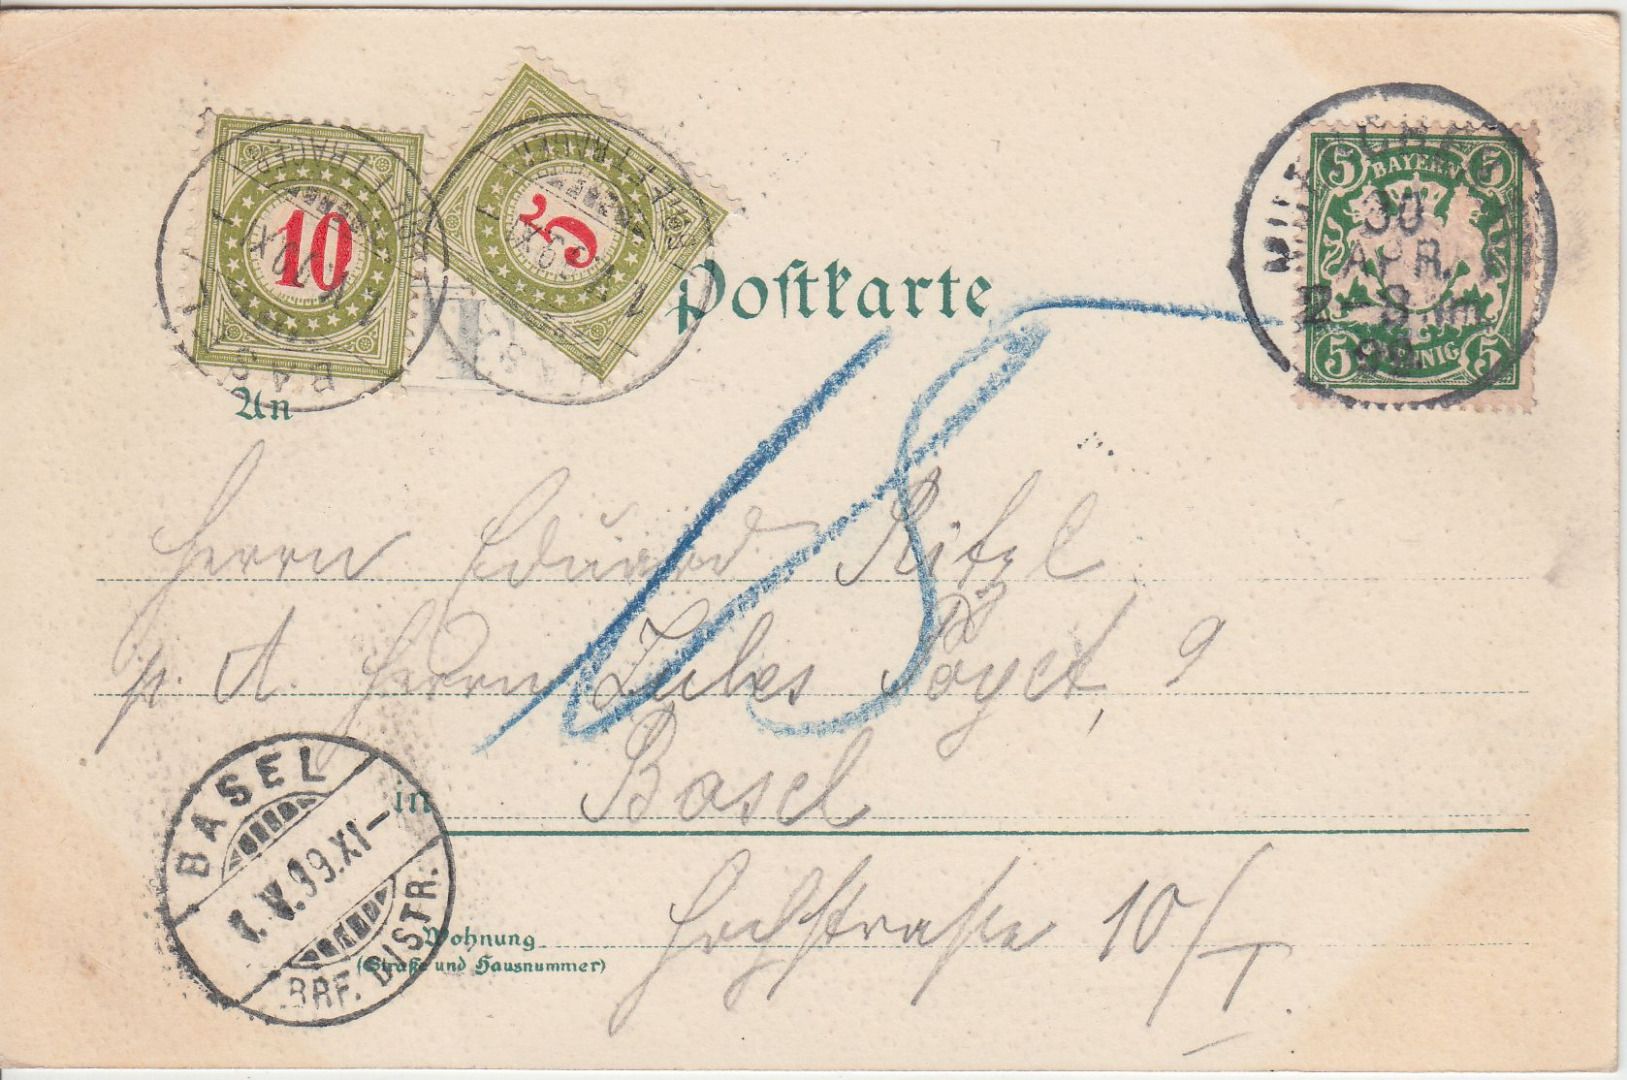 10
5
5 BAYERN 5
5 PFENNIG 5
30
APR.
2-3 Nm
99
Postkarte
T
15
An
Herrn Eduard
p. A. Herrn Jules
Basel
in
BASEL
1.V.99.XI-
BRF. DISTR.
Wohnung
(Straße und Hausnummer)
Hochstraße 10/I